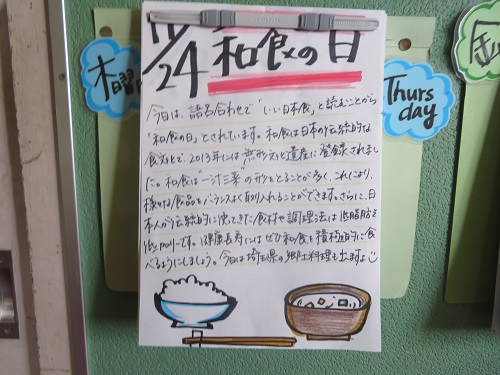 11/24 和食の日
木曜
Thurs
day
金
今日は、語呂合わせで"いい日本食"と読むことから
"和食の日"とされています。和食は日本の伝統的な
食文化で、2013年には無形文化遺産に登録されまし
た。和食は"一汁三菜"の形をとることが多く、これにより、
様々な食品をバランスよく取り入れることができます。さらに、日
本人が伝統的に使ってきた食材や調理法は低脂肪で
低カロリーです。健康長寿にはぜひ和食を積極的に食
べるようにしましょう。今日は埼玉県の郷土料理も出ますよ